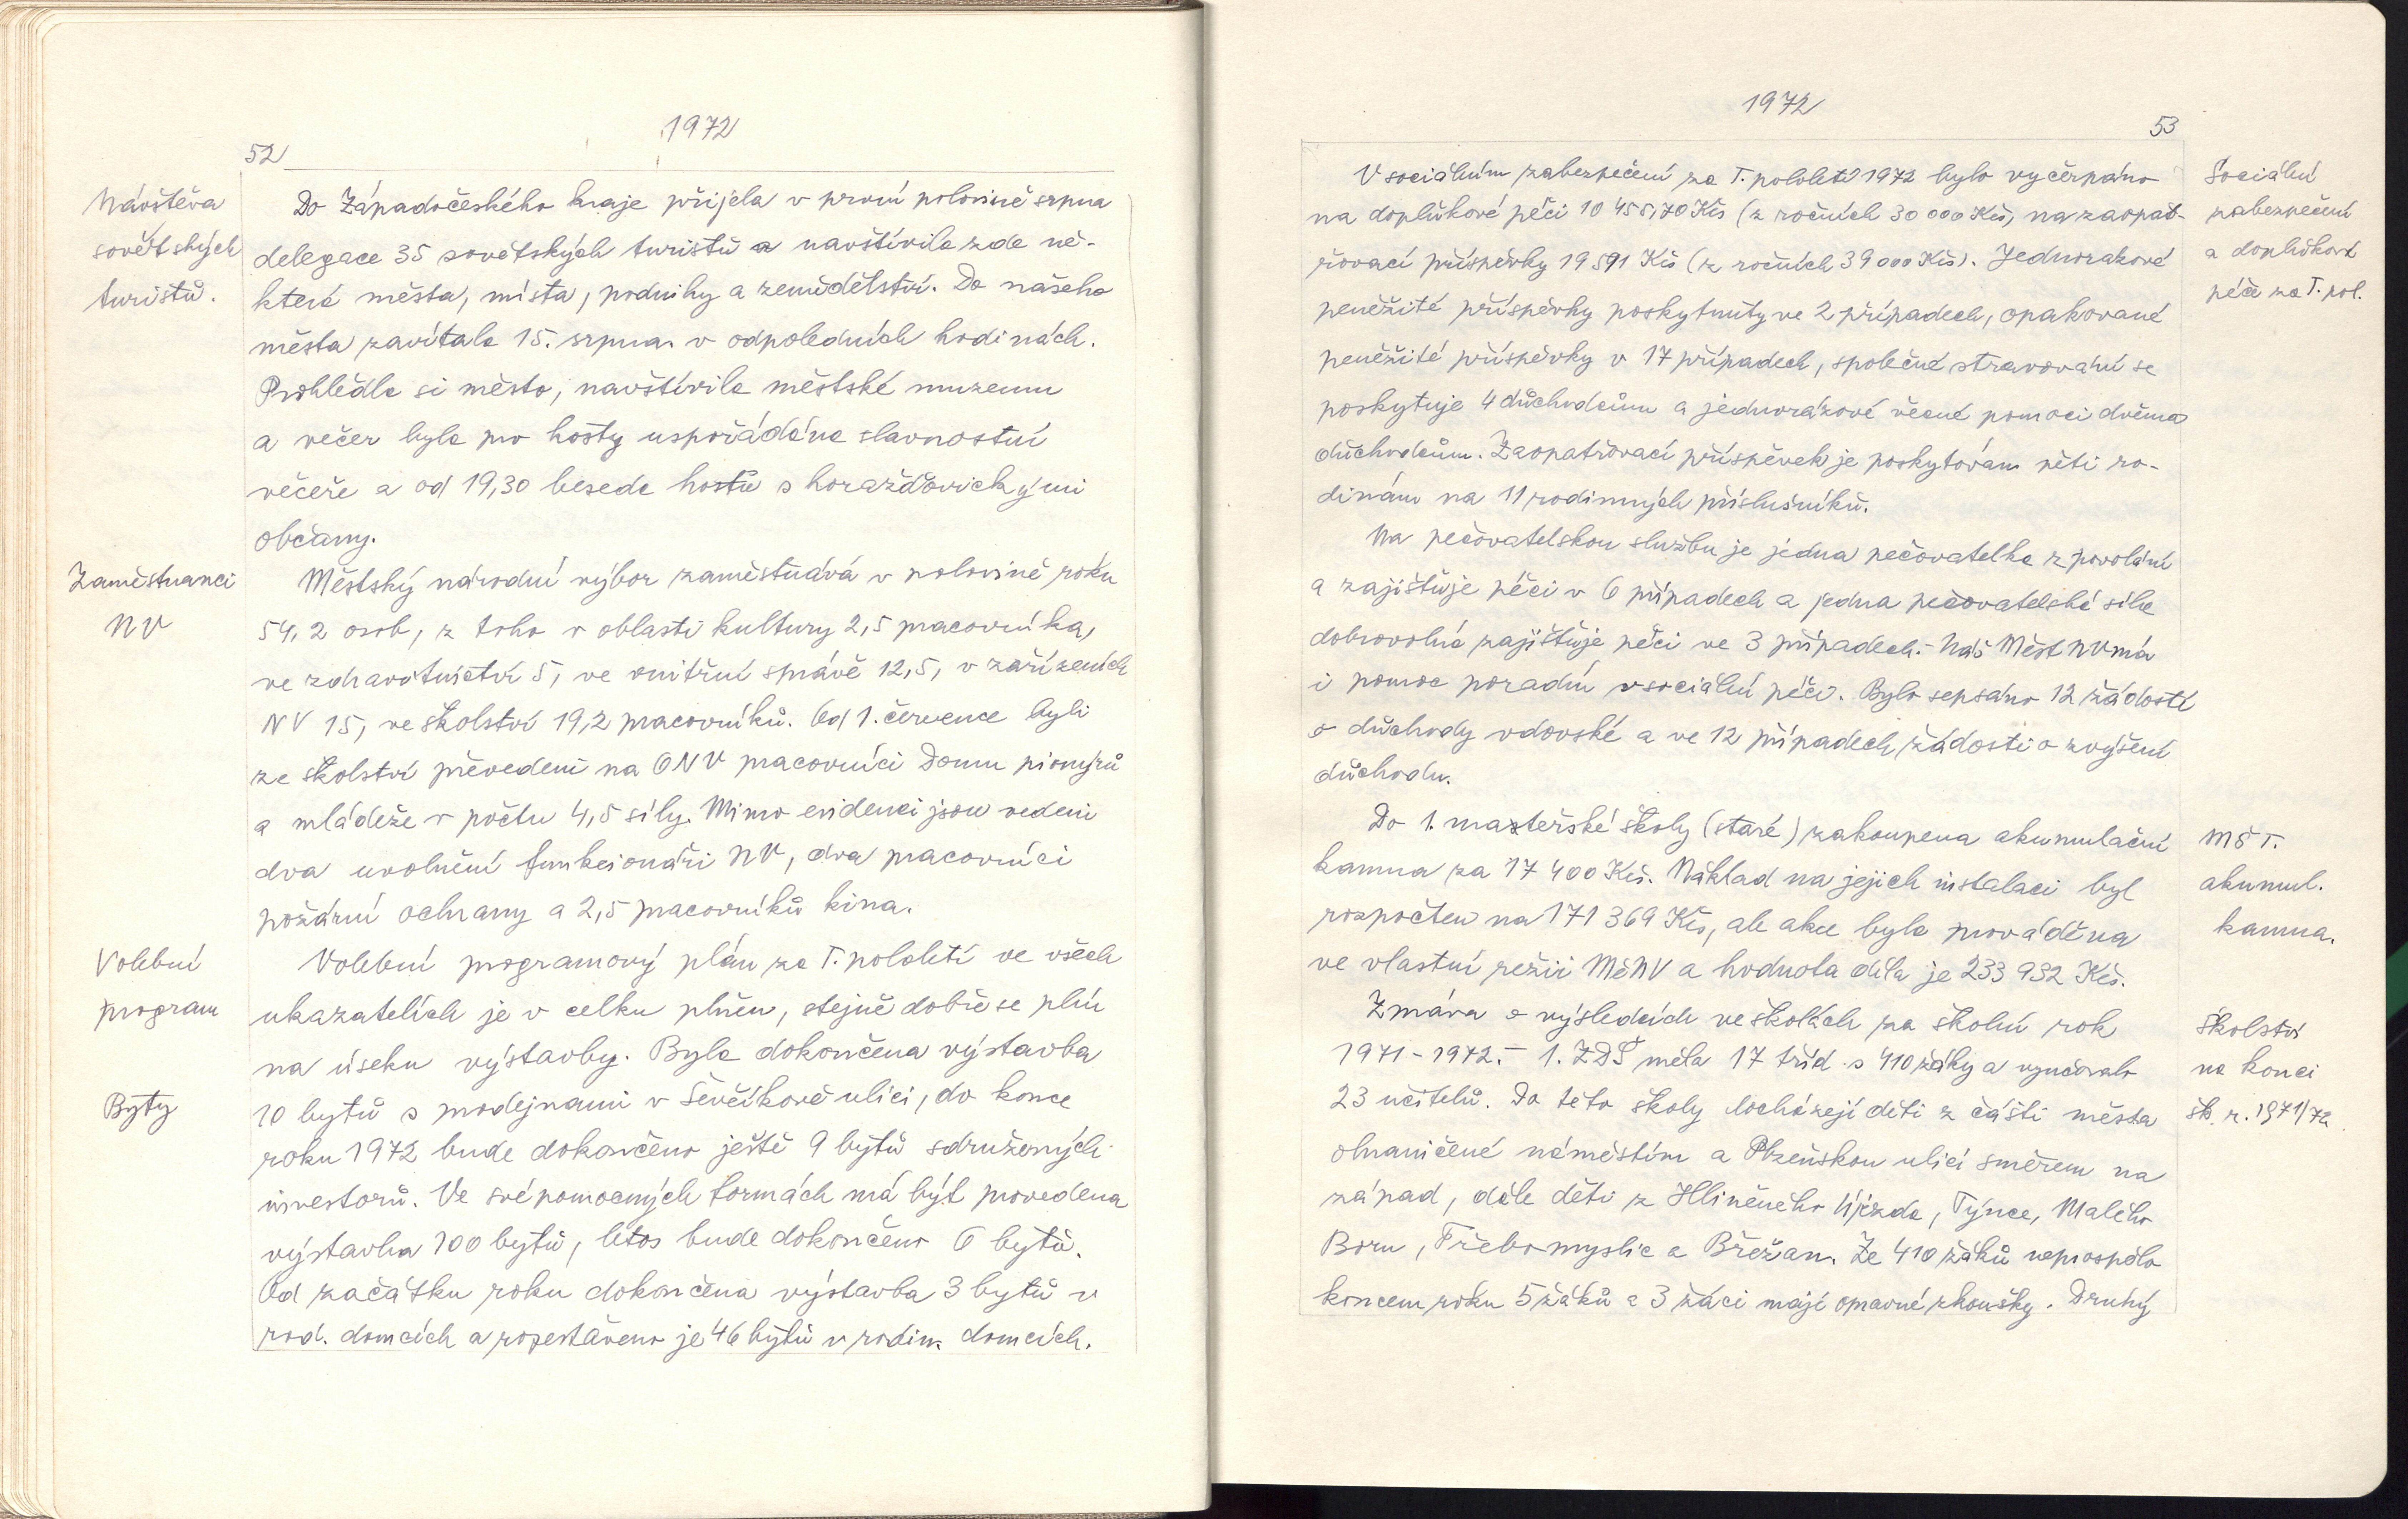 1972
52
Návštěva
sovětských
turistů.
Do Západočeského kraje přijela v první polovině srpna
delegace 35 sovětských turistů a navštívila zde ně-
která města, místa, podniky a zemědělství. Do našeho
města zavítala 15. srpna v odpoledních hodinách.
Prohlédla si město, navštívila městské muzeum
a večer byla pro hosty uspořádána slavnostní
večeře a od 19,30 beseda hostů s horažďovickými
občany.
Zaměstnanci
NV
Městský národní výbor zaměstnává v polovině roku
54,2 osob, z toho v oblasti kultury 2,5 pracovníka,
ve zdravotnictví 5, ve vnitřní správě 12,5, v zařízeních
NV 15, ve školství 19,2 pracovníků. Od 1. července byli
ze školství převedeni na ONV pracovníci Domu pionýrů
a mládeže v počtu 4,5 síly. Mimo evidenci jsou vedeni
dva uvolnění funkcionáři NV, dva pracovníci
požární ochrany a 2,5 pracovníků kina.
Volební
program
Volební programový plán za I. pololetí ve všech
ukazatelích je v celku plněn, stejně dobře se plní
na úseku výstavby. Byla dokončena výstavba
Byty
10 bytů s prodejnami v Ševčíkově ulici, do konce
roku 1972 bude dokončeno ještě 9 bytů sdružených
investorů. Ve svépomocných formách má být provedena
výstavba 100 bytů, letos bude dokončeno 6 bytů.
Od začátku roku dokončena výstavba 3 bytů v
rod. domcích a rozestavěno je 46 bytů v rodin. domcích.
1972
53
Sociální
zabezpečení
a doplňková
péče za I. pol.
V sociálním zabezpečení za I. pololetí 1972 bylo vyčerpáno
na doplňkové péči 10 455,70 Kčs (z ročních 30 000 Kčs, na zaopat-
řovací příspěvky 19 591 Kčs (z ročních 39 000 Kčs). Jednorázové
peněžité příspěvky poskytnuty ve 2 případech, opakované
peněžité příspěvky v 17 případech, společné stravování se
poskytuje 4 důchodcům a jednorázové věcné pomoci dvěma
důchodcům. Zaopatřovací příspěvek je poskytován pěti ro-
dinám na 11 rodinných příslušníků.
Na pečovatelskou službu je jedna pečovatelka z povolání
a zajišťuje péči v 6 případech a jedna pečovatelská síla
dobrovolná zajišťuje péči ve 3 případech. - Náš Měst NV má
i pomoc poradní v sociální péči. Bylo sepsáno 12 žádostí
o důchody vdovské a ve 12 případech žádosti o zvýšení
důchodu.
MŠ I.
akumul.
kamna.
Do 1. mateřské školy (staré) zakoupena akumulační
kamna za 17 400 Kčs. Náklad na jejich instalaci byl
rozpočten na 171 369 Kčs, ale akce byla prováděna
ve vlastní režii MěNV a hodnota díla je 233 932 Kčs.
Školství
na konci
šk. r. 1971/72
Zpráva o výsledcích ve školách za školní rok
1971-1972. - 1. ZDŠ měla 17 tříd s 410 žáky a vyučovalo
23 učitelů. Do této školy docházejí děti z části města
ohraničené náměstím a Plzeňskou ulicí směrem na
západ, dále děti z Hliněného Újezda, Týnce, Malého
Boru, Třebomyslic a Břežan. Ze 410 žáků neprospělo
koncem roku 5 žáků a 3 žáci mají opravné zkoušky. Druhý